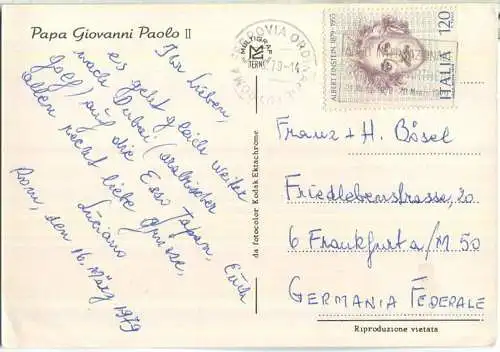 Papa Giovanni Paolo II
Ihr Lieben,
es geht gleich weiter
nach Dubai (arabischer
Golf) auf die Esso Japan. Euch
allen recht liebe Grüsse,
Luciano
Rom, den 16. März 1979
da fotocolor Kodak Ektachrome
MULTIGRAF
TERNI
FERROVIA ORD
ALBERT EINSTEIN 1879-1955
ITALIA 120
Franz + H. Bösel
Friedlebenstrasse, 20
6 Frankfurt a/M 50
GERMANIA FEDERALE
Riproduzione vietata